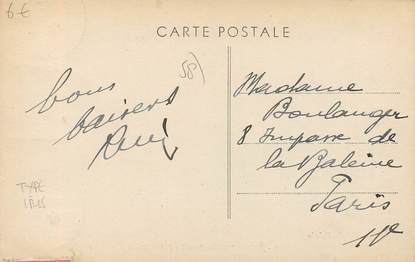 6€
CARTE POSTALE
58)
bons
baisers
Madame
Boulanger
8 Impasse de
la Baleine
Paris
11e
TYPE
IRIS